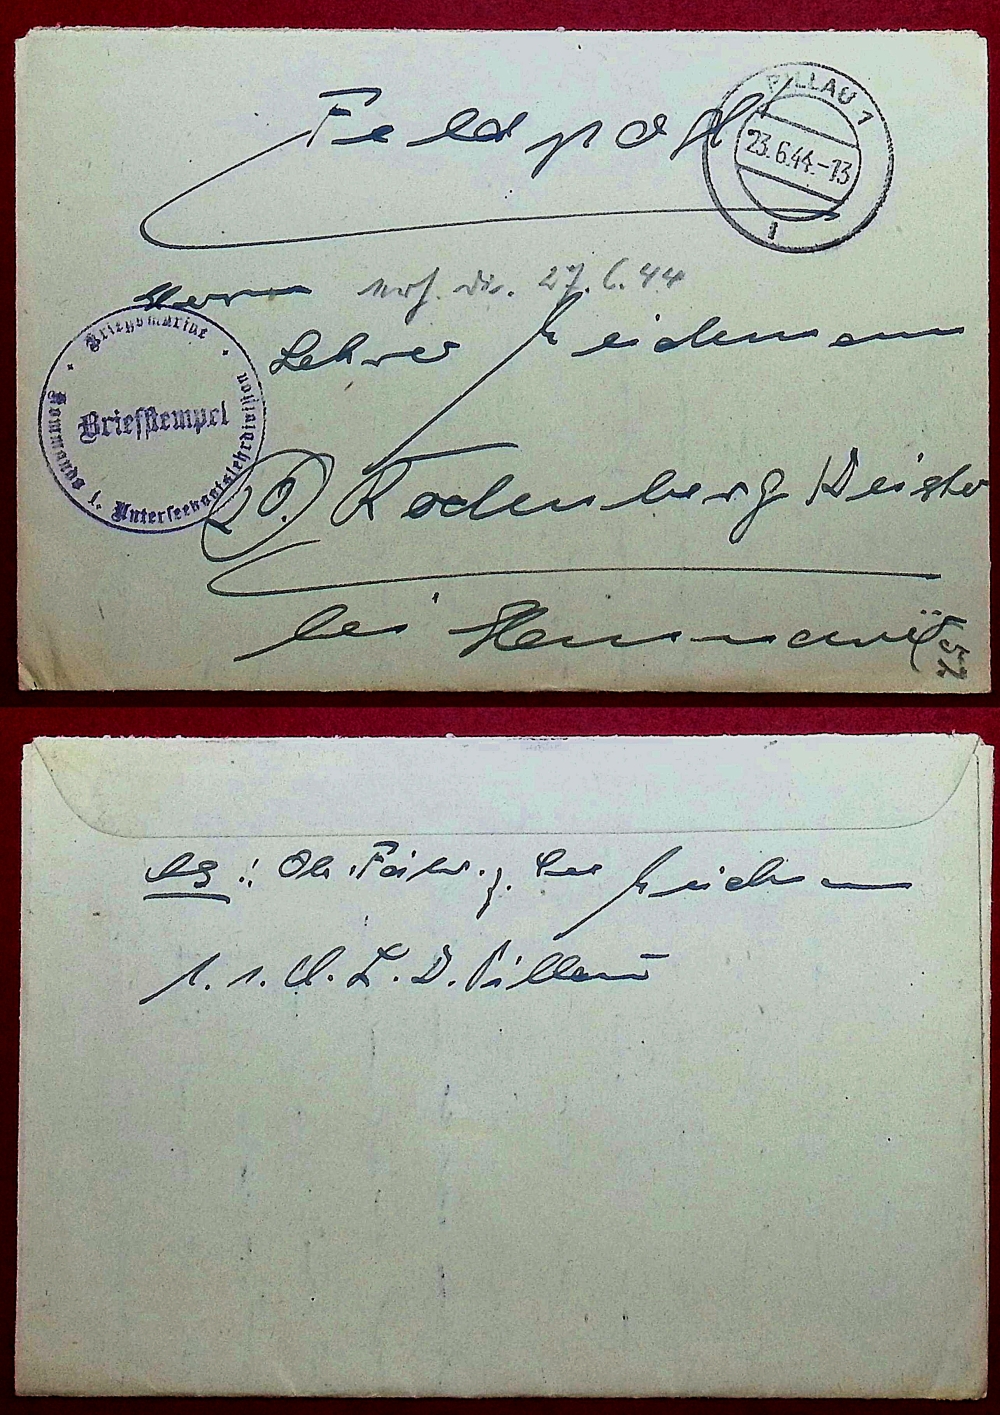 Feldpost
PILLAU 1
23.6.44.-13
1
Herrn
27.6.44
Lehrer Heidemann
Kriegsmarine
Briefstempel
Kommando 1. Unterseebootslehrdivision
20. Rodenberg Deister
bei Hannover
57.
Ob. Fähnr. z. See Heidemann
1. U. L. D. Pillau